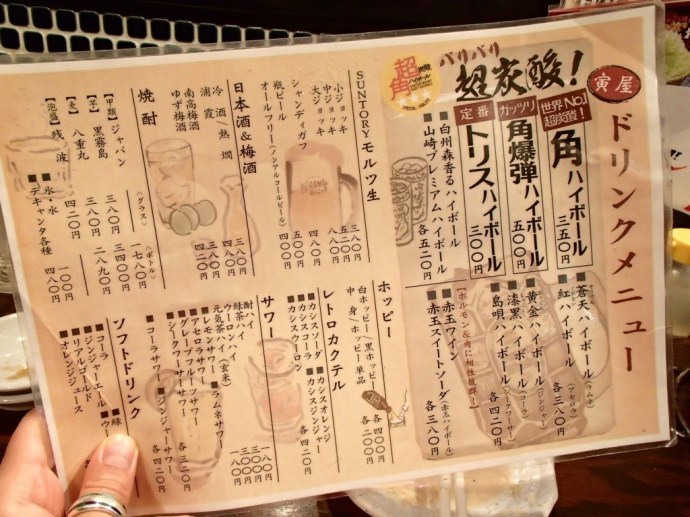 寅屋
ドリンクメニュー
バリバリ
超炭酸！
超角
世界No.1
超炭酸！
角ハイボール
三五〇円
ガッツリ
角爆弾ハイボール
五〇〇円
定番
トリスハイボール
三〇〇円
■白州森香るハイボール
■山崎プレミアムハイボール
各五二〇円
■蒼天ハイボール（ラムネ）
■紅ハイボール（アセロラ）
各三八〇円
■黄金ハイボール（ジンジャー）
■漆黒ハイボール（コーラ）
■島唄ハイボール（シークワーサー）
各四二〇円
【ホルモン＆肉に相性抜群！】
■赤玉ワイン
■赤玉スイートソーダ（赤玉ハイボール）
各三八〇円
SUNTORYモルツ生
小ジョッキ
三八〇円
中ジョッキ
大ジョッキ
シャンディガフ
瓶ビール
オールフリー（ノンアルコールビール）
日本酒＆梅酒
冷酒
熱燗
浦霞
南高梅酒
ゆず梅酒
焼酎
〈グラス〉
〈ボトル〉
【甲類】ジャパン
三八〇円
一七八〇円
【芋】黒霧島
三八〇円
【麦】八重丸
【泡盛】残波
■氷・水
一〇〇円
■デキャンタ各種
ホッピー
白ホッピー／黒ホッピー
各四〇〇円
中身／ホッピー単品
各二〇〇円
レトロカクテル
■カシスソーダ
■カシスオレンジ
■カシスコーラ
■カシスジンジャー
■カシスウーロン
各四二〇円
サワー
酎ハイ
緑茶ハイ
ウーロンハイ
元気茶ハイ（玄米）
■レモンサワー
■ラムネサワー
■アセロラサワー
■グレープフルーツサワー
■シークワーサーサワー
各三二〇円
■コーラサワー
■ジンジャーサワー
各四二〇円
ソフトドリンク
■コーラ
■緑
■ジンジャーエール
■ウー
■リアルゴールド
■オレンジジュース